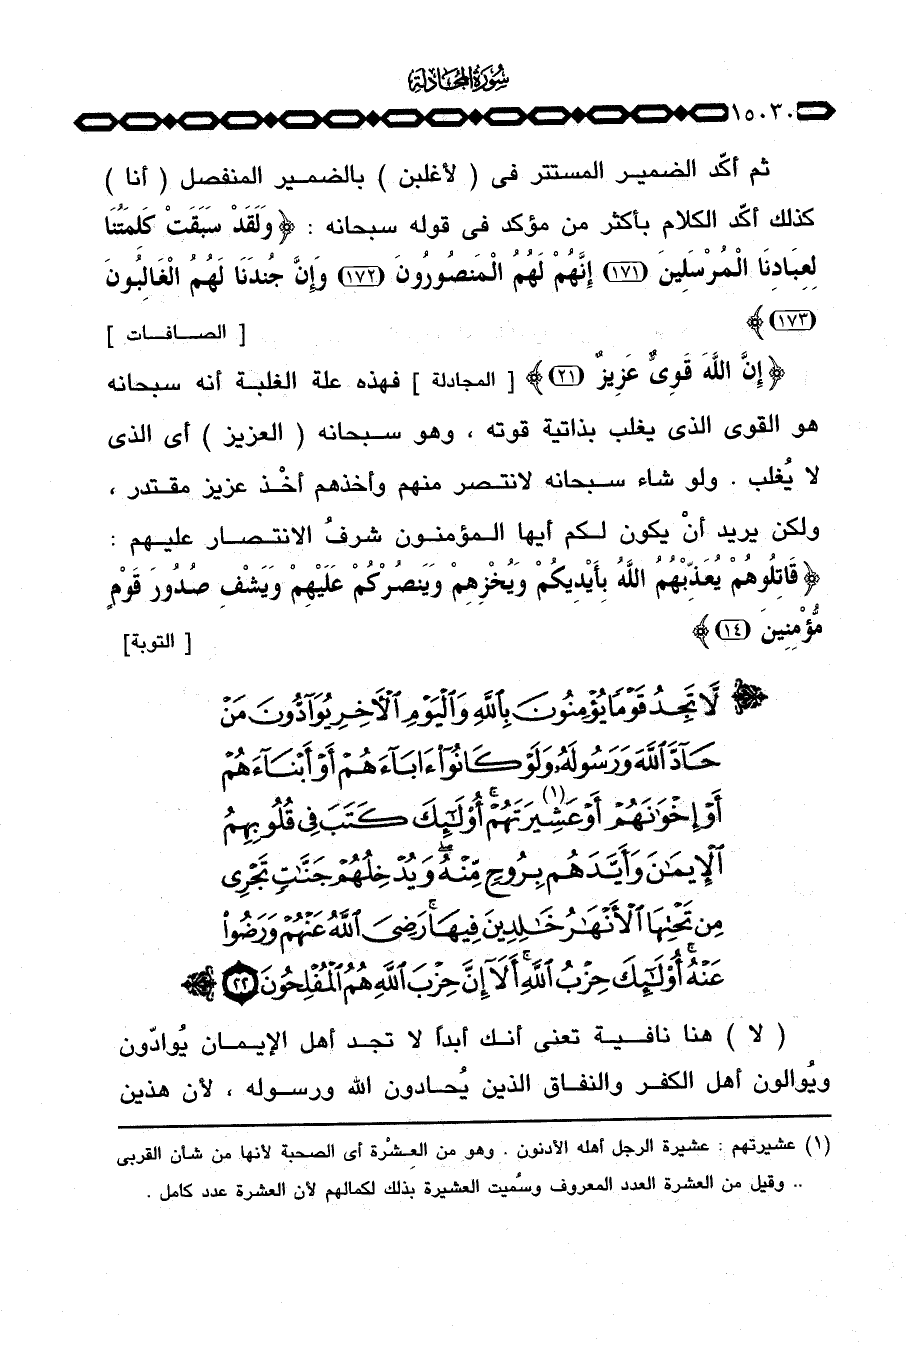 سُورَةُ المُجَادلَة
١٥٠٣٠
ثم أكّد الضميـر المستتر فى ( لأغلبن ) بالضمـير المنفصل ( أنا )
كذلك أكّد الكلام بأكثر من مؤكد فى قوله سبحانه : ﴿ وَلَقَدْ سَبَقَتْ كَلِمَتُنَا
لِعِبَادِنَا الْمُرْسَلِينَ (١٧١) إِنَّهُمْ لَهُمُ الْمَنصُورُونَ (١٧٢) وَإِنَّ جُندَنَا لَهُمُ الْغَالِبُونَ
(١٧٣) ﴾
[ الصـافـات ]
﴿ إِنَّ اللَّهَ قَوِىٌّ عَزِيزٌ (٢١) ﴾ [ المجادلة ] فهذه علة الغلبـة أنه سبحانه
هو القوى الذى يغلب بذاتية قوته ، وهو سـبحانه ( العزيز ) أى الذى
لا يُغلب . ولو شاء سـبحانه لانتـصر منهم وأخذهم أخْـذ عزيز مقـتدر ،
ولكن يريد أنْ يكون لـكم أيها الـمؤمنـون شرفُ الانتـصـار عليـهم :
﴿ قَاتِلُوهُمْ يُعَذِّبْهُمُ اللَّهُ بِأَيْدِيكُمْ وَيُخْزِهِمْ وَيَنصُرْكُمْ عَلَيْهِمْ وَيَشْفِ صُدُورَ قَوْمٍ
مُّؤْمِنِينَ (١٤) ﴾
[ التوبة]
﴿ لَّا تَجِدُ قَوْمًا يُؤْمِنُونَ بِٱللَّهِ وَٱلْيَوْمِ ٱلْأَخِرِ يُوَآدُّونَ مَنْ
حَآدَّ ٱللَّهَ وَرَسُولَهُۥ وَلَوْ كَانُوٓا۟ ءَابَآءَهُمْ أَوْ أَبْنَآءَهُمْ
أَوْ إِخْوَٰنَهُمْ أَوْ عَشِيرَتَهُمْ (١) ۚ أُو۟لَٰٓئِكَ كَتَبَ فِى قُلُوبِهِمُ
ٱلْإِيمَٰنَ وَأَيَّدَهُم بِرُوحٍ مِّنْهُ ۖ وَيُدْخِلُهُمْ جَنَّٰتٍ تَجْرِى
مِن تَحْتِهَا ٱلْأَنْهَٰرُ خَٰلِدِينَ فِيهَا ۚ رَضِىَ ٱللَّهُ عَنْهُمْ وَرَضُوا۟
عَنْهُ ۚ أُو۟لَٰٓئِكَ حِزْبُ ٱللَّهِ ۚ أَلَآ إِنَّ حِزْبَ ٱللَّهِ هُمُ ٱلْمُفْلِحُونَ ٢٢ ﴾
( لا ) هنا نافـيـة تعنى أنـك أبداً لا تجـد أهل الإيـمـان يُوادّون
ويُوالون أهل الكفر والنفاق الذين يُحـادون الله ورسوله ، لأن هذين
(١) عشيرتهم : عشيرة الرجل أهله الأدنون . وهو من العِـشْرة أى الصحبة لأنها من شأن القربى
.. وقيل من العشرة العدد المعروف وسُميت العشيرة بذلك لكمالهم لأن العشرة عدد كامل .